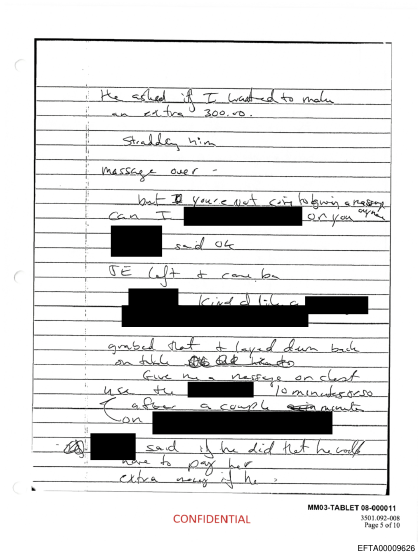 He asked if I wanted to make
an extra 300.00.
Straddling him
massage over -
but you're not going to giving a massage anymore
can I or you
said ok
JE left + came ba
kind of like a
grabbed that + layed down back
on table
Give me a massage on chest
use the 10 minutes or so
after a couple minutes
on
said if he did that he would
have to pay her
extra money if he
MM03-TABLET 08-000011
CONFIDENTIAL
3501.092-008
Page 5 of 10
EFTA00009626